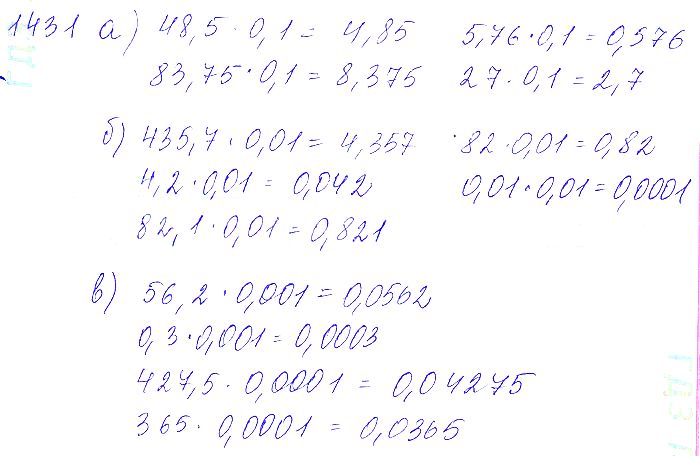 1431 а) 48,5 · 0,1 = 4,85 5,76 · 0,1 = 0,576
83,75 · 0,1 = 8,375 27 · 0,1 = 2,7
б) 435,7 · 0,01 = 4,357 82 · 0,01 = 0,82
4,2 · 0,01 = 0,042 0,01 · 0,01 = 0,0001
82,1 · 0,01 = 0,821
в) 56,2 · 0,001 = 0,0562
0,3 · 0,001 = 0,0003
427,5 · 0,0001 = 0,04275
365 · 0,0001 = 0,0365